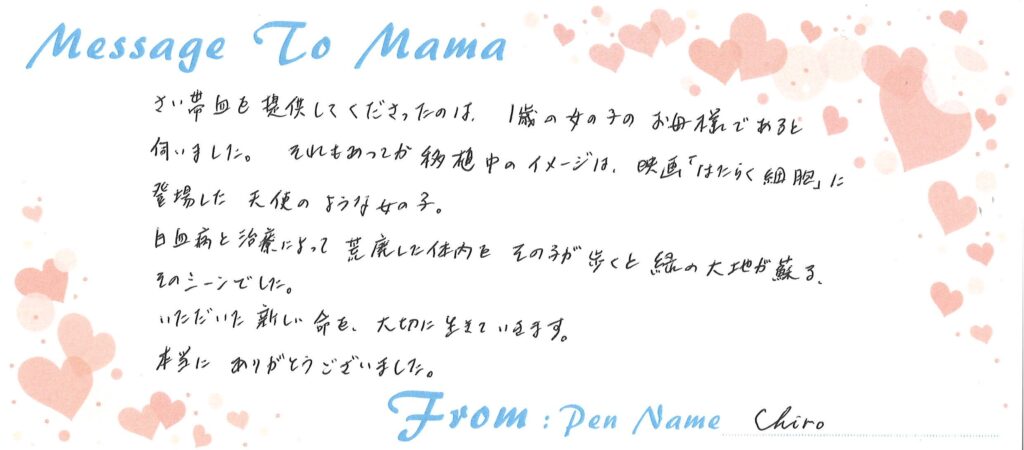 Message To Mama
さい帯血を提供してくださったのは、1歳の女の子のお母様であると
伺いました。それもあってか移植中のイメージは、映画「はたらく細胞」に
登場した天使のような女の子。
白血病と治療によって荒廃した体内をその子が歩くと緑の大地が蘇る、
そのシーンでした。
いただいた新しい命を、大切に生きていきます。
本当にありがとうございました。
From : Pen Name Chiro